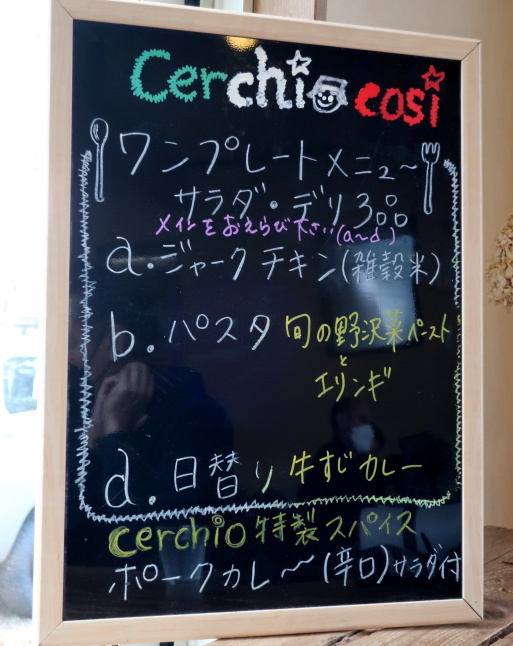 Cerchio cosi
ワンプレートメニュ〜
サラダ・デリ3品
メインをおえらび下さい(a〜d)
a.ジャークチキン(雑穀米)
b.パスタ 旬の野沢菜ペースト
と
エリンギ
d.日替り 牛すじカレー
cerchio特製スパイス
ポークカレ〜(辛口)サラダ付